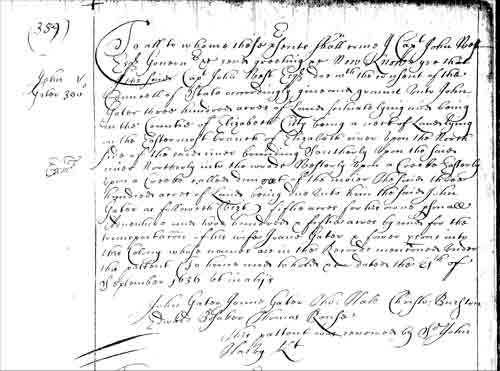 (359)
To all to whome these psents shall come I Capt John West
Esqr Govern &c send greeting &c Now Know yee that
I the said Capt John West Esqr &c with the consent of the
Councell of State accordingly give and graunt unto John
John
Gater 300
Gater three hundred acres of Land scituate lying and being
in the Countie of Elizabeth Citty being a neck of Land lying
in the Eastermost branch of Elizabeth river upon the North
side of the said river bounding Southerly upon the said
river Northerly into the woods Westerly upon a Creeke Easterly
upon a Creeke called of the The said three
hundred acres of Land being due unto him the said John
Gater as followeth (Vizt) fiftie acres for his owne psonall
Adventure and two hundred & fiftie acres by and for the
transportation of his wife Joane Gater & fower psons into
this Colony whose names are in the Records mentioned under
this pattent To have and to hold &c dated the 21th of
September 1636 ut in aliis
John Gater Joane Gater Tho: Hale Christo: Burston
Edward Thomas Rouse
This pattent was renewed by Sr John
Harvy Kt